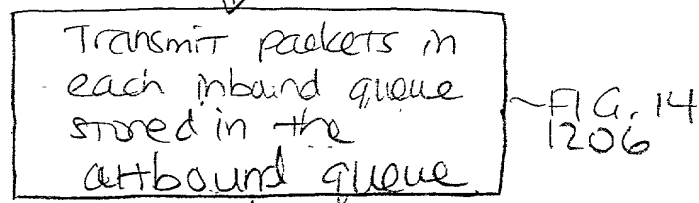 Transmit packets in
each inbound queue
stored in the
outbound queue
FIG. 14
1206